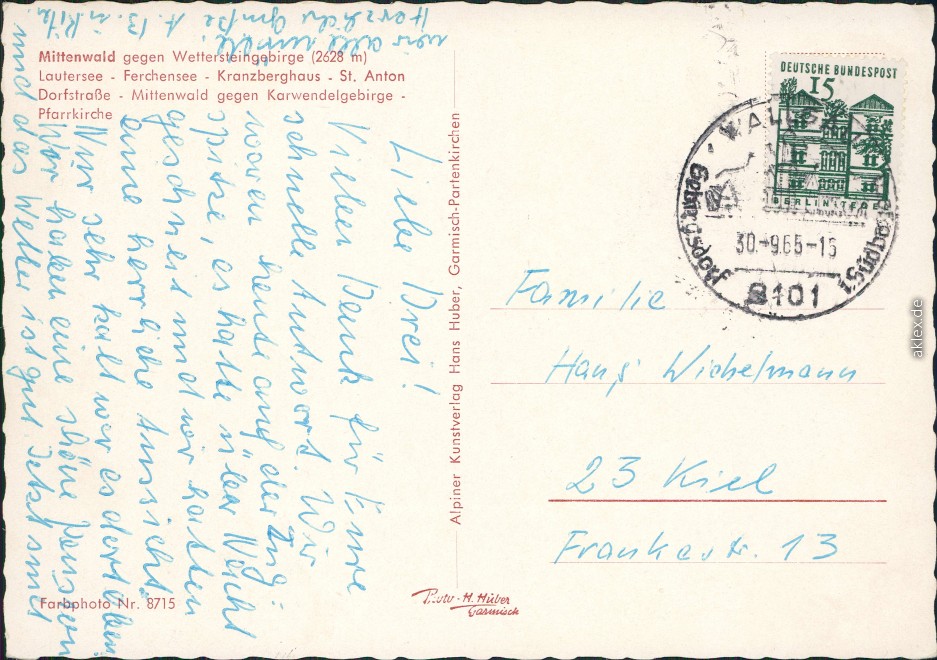 Mittenwald gegen Wettersteingebirge (2628 m)
Lautersee - Ferchensee - Kranzberghaus - St. Anton
Dorfstraße - Mittenwald gegen Karwendelgebirge -
Pfarrkirche
Liebe Drei!
Vielen Dank für Eure
schnelle Antwort. Wir
waren heute auf der Zug-
spitze, es hatte über Nacht
geschneit und wir hatten
eine herrliche Aussicht.
Nur sehr kalt war es dort oben
Wir haben eine schöne Pension
und das Wetter ist gut. Jetzt sind
wir alle
Herzliche Grüße
Farbphoto Nr. 8715
Alpiner Kunstverlag Hans Huber, Garmisch-Partenkirchen
Photo-H. Huber
Garmisch
DEUTSCHE BUNDESPOST
15
Gebirgsdorf
30.-9.65-15
8101
Familie
Hans Wichelmann
23 Kiel
Frankestr. 13
aklex.de